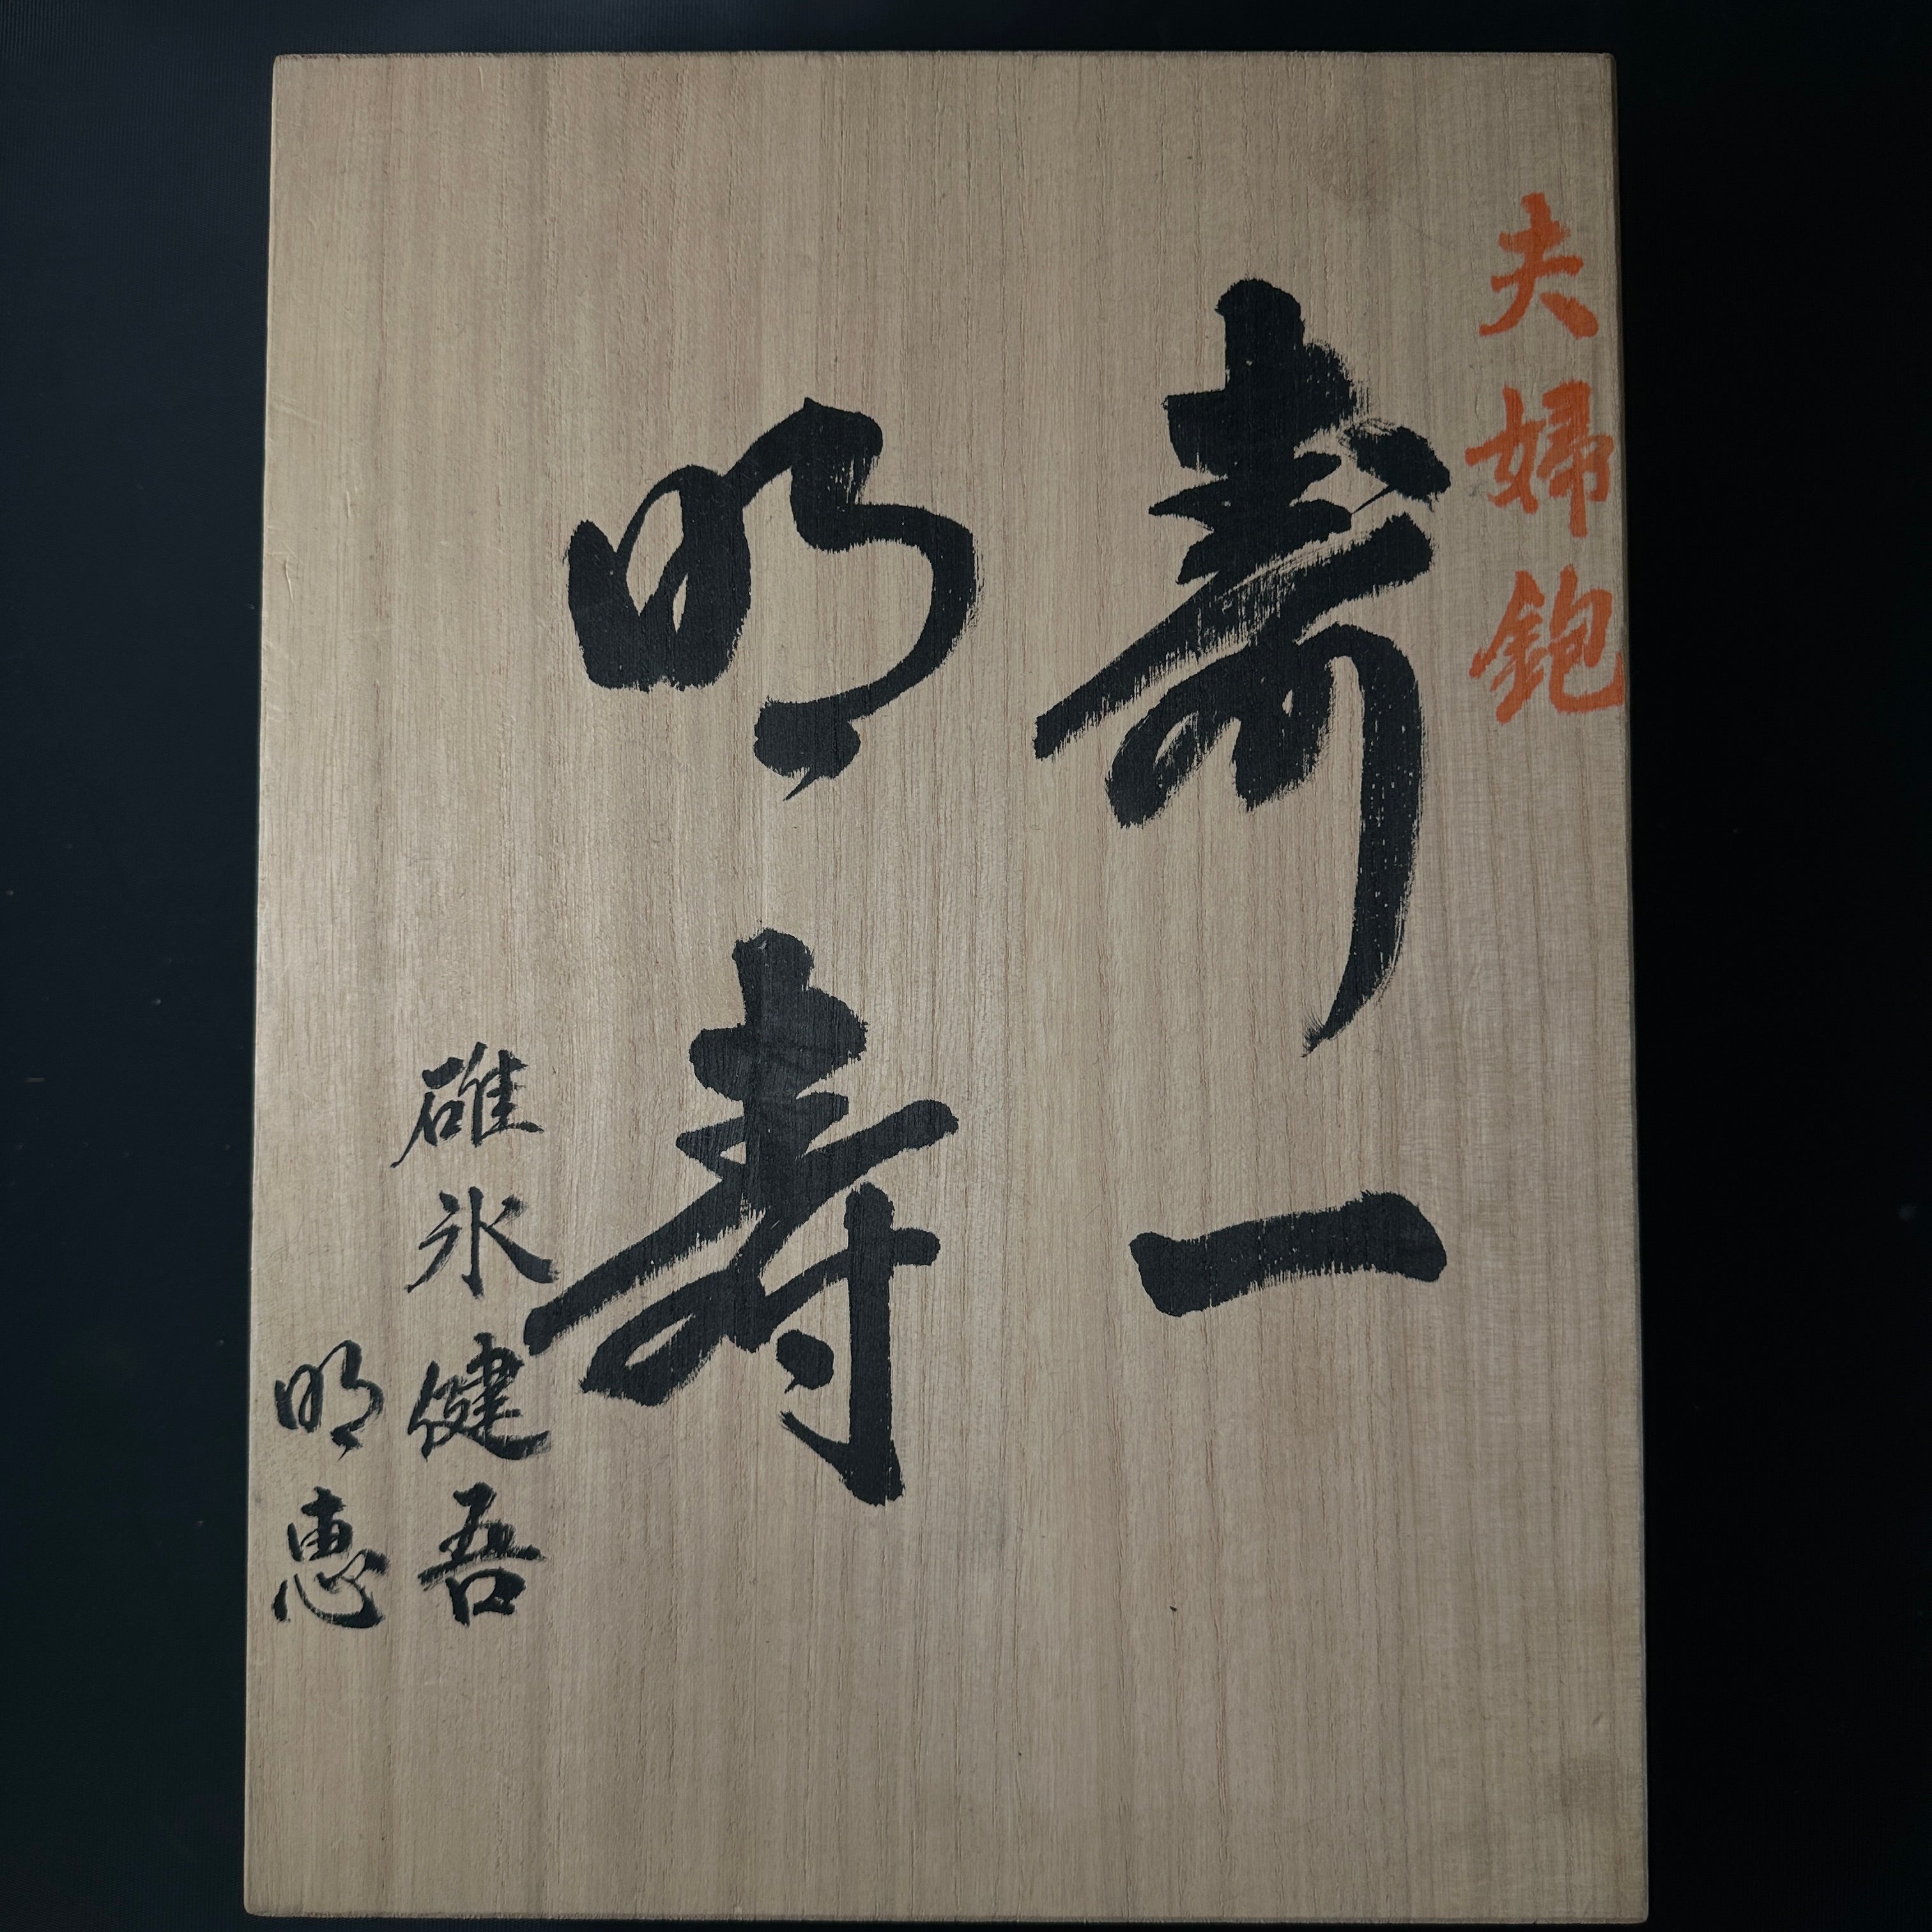 夫婦鉋
寿一
明寿
碓氷健吾
明恵